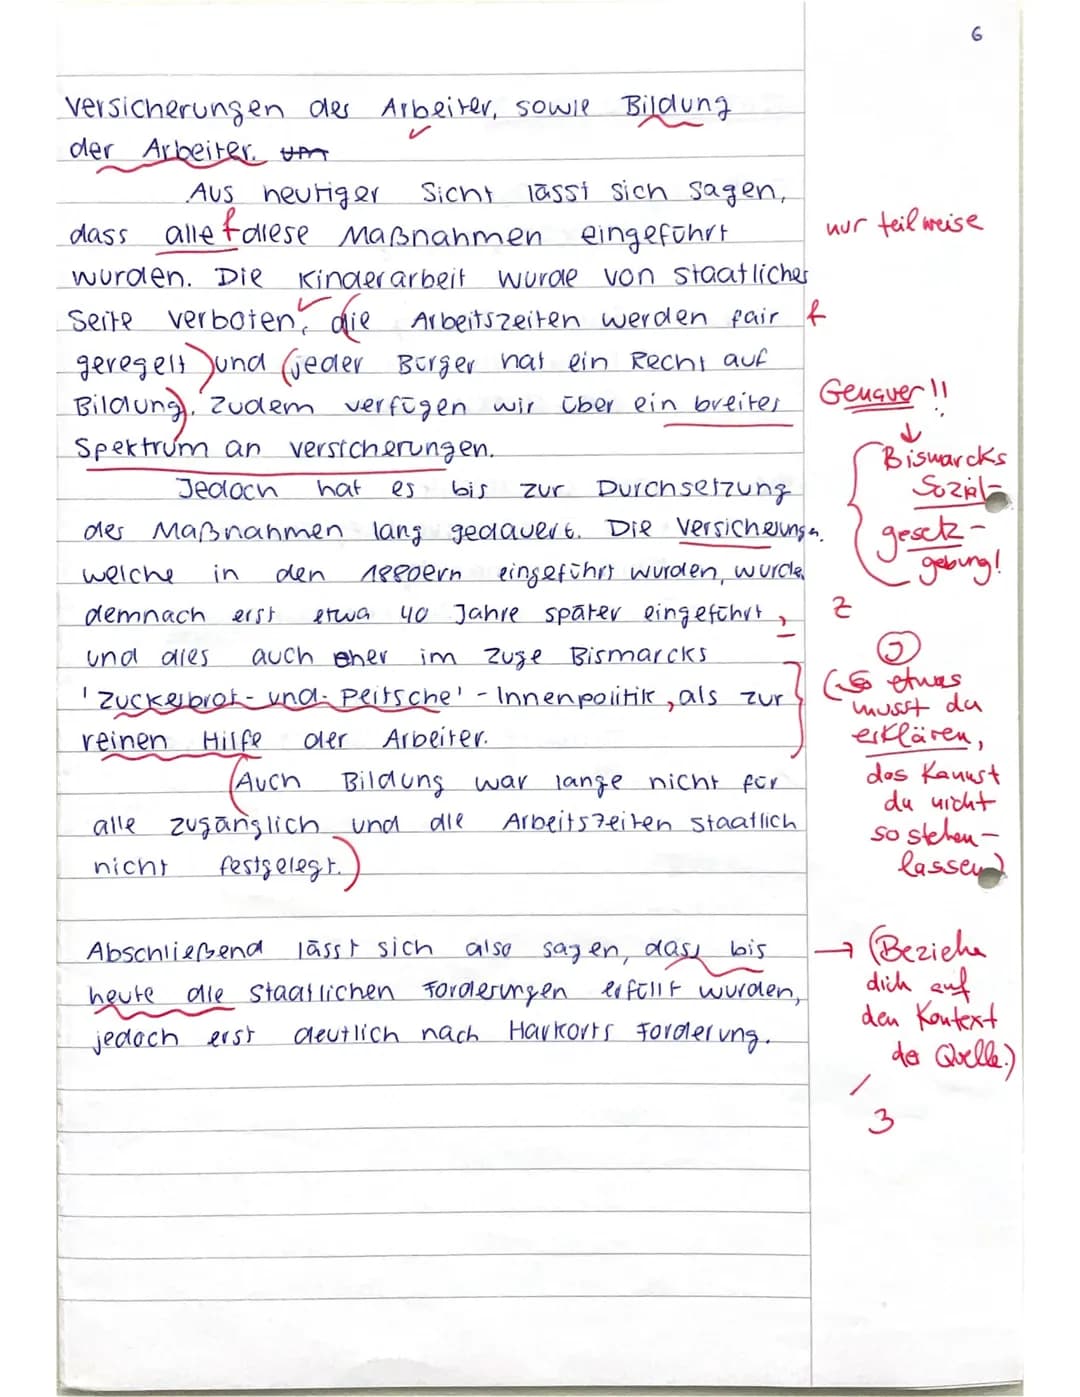 6
Versicherungen der Arbeiter, sowie Bildung
der Arbeiter. um
Aus heutiger Sicht lässt sich sagen,
dass alle f diese Maßnahmen eingeführt
nur teilweise
wurden. Die Kinderarbeit wurde von staatlicher
Seite verboten, die Arbeitszeiten werden fair
f
geregelt und (jeder Bürger hat ein Recht auf
Bildung). Zudem verfügen wir über ein breites
Genauer!!
Spektrum an Versicherungen.
Bismarcks
Jedoch hat es bis zur Durchsetzung
Sozial-
der Maßnahmen lang gedauert. Die Versicherungen,
gesetz-
welche in den 1880ern eingeführt wurden, wurden
gebung!
demnach erst etwa 40 Jahre später eingeführt,
Z
und dies auch eher im Zuge Bismarcks
J
'Zuckerbrot-und-Peitsche' - Innenpolitik, als zur
(So etwas
musst du
reinen Hilfe der Arbeiter.
erklären,
(Auch Bildung war lange nicht für
das kannst
du nicht
alle zugänglich und die Arbeitszeiten staatlich
so stehen-
nicht festgelegt.)
lassen)
Abschließend lässt sich also sagen, dass bis
→ (Beziehe
heute die staatlichen Forderungen erfüllt wurden,
dich auf
den Kontext
jedoch erst deutlich nach Harkorts Forderung.
der Quelle.)
/
3